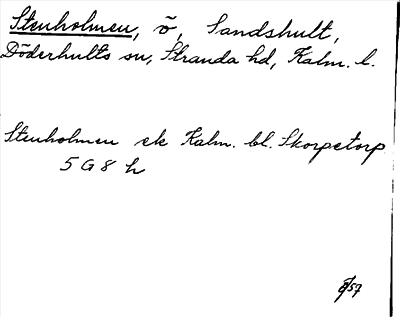 Stenholmen, ö, Sandshult,
Döderhults sn, Stranda hd, Kalm. l.
Stenholmen ek Kalm. bl. Skorpetorp
5 G 8 h